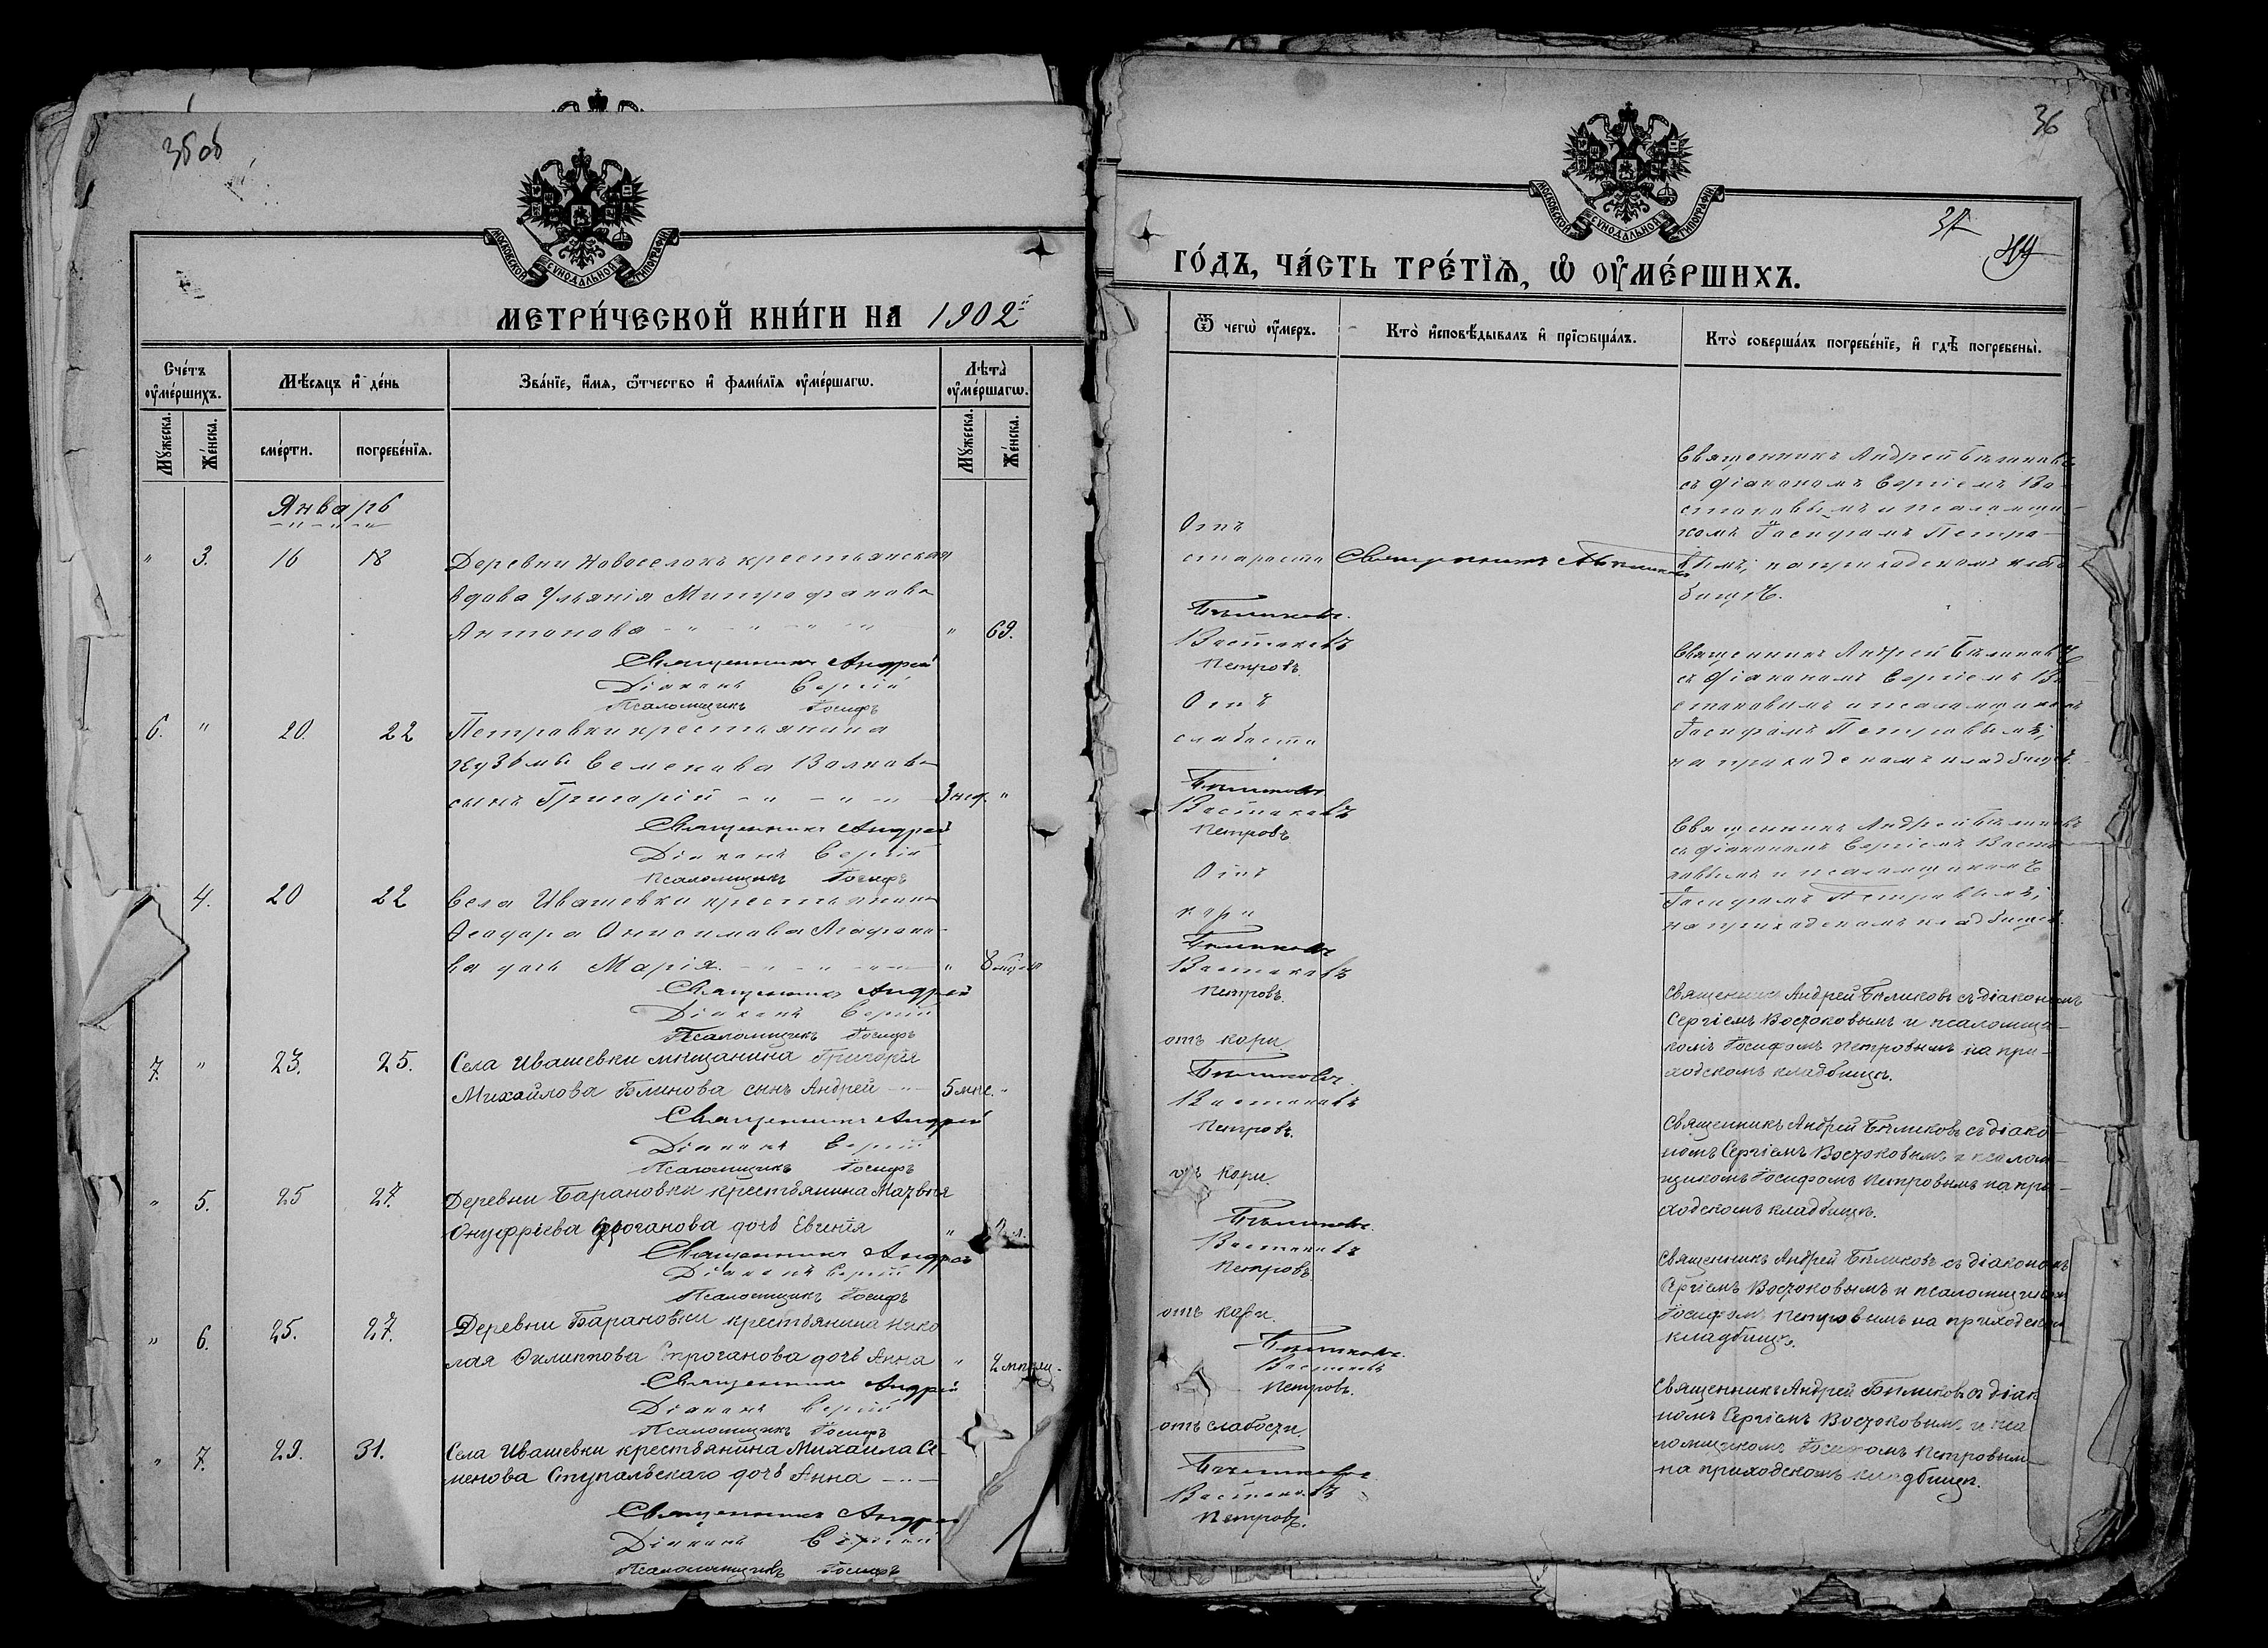 35об
МОСКОВСКОЙ СѴНОДАЛЬНОЙ ТИПОГРАФІИ
МЕТРИ́ЧЕСКОЙ КНИ́ГИ НА 1902й
Сче́тъ оу҆ме́ршихъ.
Мѣ́сяцъ и҆ де́нь
Зва́нїе, и҆́мя, ѿтчество и҆ фами́лїя оу҆ме́ршагѡ.
Лѣта̀ оу҆ме́ршагѡ.
Мꙋ́жеска.
Же́нска.
сме́рти.
погребе́нїя.
Мꙋ́жеска.
Же́нска.
Январь
" 3. 16 18 Деревни Новоселокъ крестьянская
вдова Ульянія Митрофанова
Антонова " 69.
Священникъ Андрей
Діаконъ Сергій
Псаломщикъ Іосифъ
6. " 20. 22 Петровки крестьянина
Кузьмы Семенова Волкова
сынъ Григорій 3 нед. "
Священникъ Андрей
Діаконъ Сергій
Псаломщикъ Іосифъ
4. 20 22 Села Ивашевки крестьянина
Ѳеодора Онисимова Агафоно-
ва дочь Марія. "
Священникъ Андрей
Діаконъ Сергій
Псаломщикъ Іосифъ
7. " 23. 25. Села Ивашевки мѣщанина Григорія
Михайлова Блинова сынъ Андрей 5 мѣс. "
Священникъ Андрей
Діаконъ Сергій
Псаломщикъ Іосифъ
" 5. 25 27. Деревни Барановки крестьянина Матвѣя
Онуфріева дочь Евгенія "
Священникъ Андрей
Діаконъ Сергій
Псаломщикъ Іосифъ
" 6. 25. 27. Деревни Барановки крестьянина Нико
лая Филиппова Строганова дочь Анна "
Священникъ Андрей
Діаконъ Сергій
Псаломщикъ Іосифъ
" 7. 29. 31. Села Ивашевки крестьянина Михаила Се-
менова Ступальскаго дочь Анна
Священникъ Андрей
Діаконъ Сергій
Псаломщикъ Іосифъ
36
МОСКОВСКОЙ СѴНОДАЛЬНОЙ ТИПОГРАФІИ
ГО́ДЪ, ЧА́СТЬ ТРЕ́ТЇѦ, Ѡ҆ ОУ҆МЕ́РШИХЪ.
Ѿ чегѡ̀ оу҆́меръ.
Кто̀ и҆сповѣ́дывалъ и҆ прїѡбща́лъ.
Кто̀ соверша́лъ погребе́нїе, и҆ гдѣ̀ погребены̀.
Священникъ Андрей Бѣликовъ
съ діакономъ Сергіемъ Во-
стоковымъ и псаломщи-
комъ Іосифомъ Петро-
вымъ; на приходскомъ клад
бищѣ.
Отъ
старости Священникъ Бѣликовъ
Бѣликовъ.
Востоковъ
Петровъ.
Священникъ Андрей Бѣликовъ
съ діакономъ Сергіемъ Во
стоковымъ и псаломщикомъ
Іосифомъ Петровымъ;
на приходскомъ кладбищѣ.
Отъ
слабости
Бѣликовъ
Востоковъ
Петровъ.
Священникъ Андрей Бѣликовъ
съ діакономъ Сергіемъ Восто
ковымъ и псаломщикомъ
Іосифомъ Петровымъ;
на приходскомъ кладбищѣ.
Отъ
кори
Бѣликовъ
Востоковъ
Петровъ.
Священникъ Андрей Бѣликовъ съ діакономъ
Сергіемъ Востоковымъ и псаломщи-
комъ Іосифомъ Петровымъ на при-
ходскомъ кладбищѣ.
отъ кори
Бѣликовъ.
Востоковъ
Петровъ.
Священникъ Андрей Бѣликовъ съ діако-
номъ Сергіемъ Востоковымъ и псалом-
щикомъ Іосифомъ Петровымъ на при-
ходскомъ кладбищѣ.
отъ кори.
Бѣликовъ.
Востоковъ
Петровъ
Священникъ Андрей Бѣликовъ съ діакономъ
Сергіемъ Востоковымъ и псаломщикомъ
Іосифомъ Петровымъ на приходскомъ
кладбищѣ.
отъ кори.
Бѣликовъ.
Востоковъ
Петровъ.
Священникъ Андрей Бѣликовъ съ діако
номъ Сергіемъ Востоковымъ и пса
ломщикомъ Іосифомъ Петровымъ
на приходскомъ кладбищѣ.
отъ слабости
Бѣликовъ
Востоковъ
Петровъ.